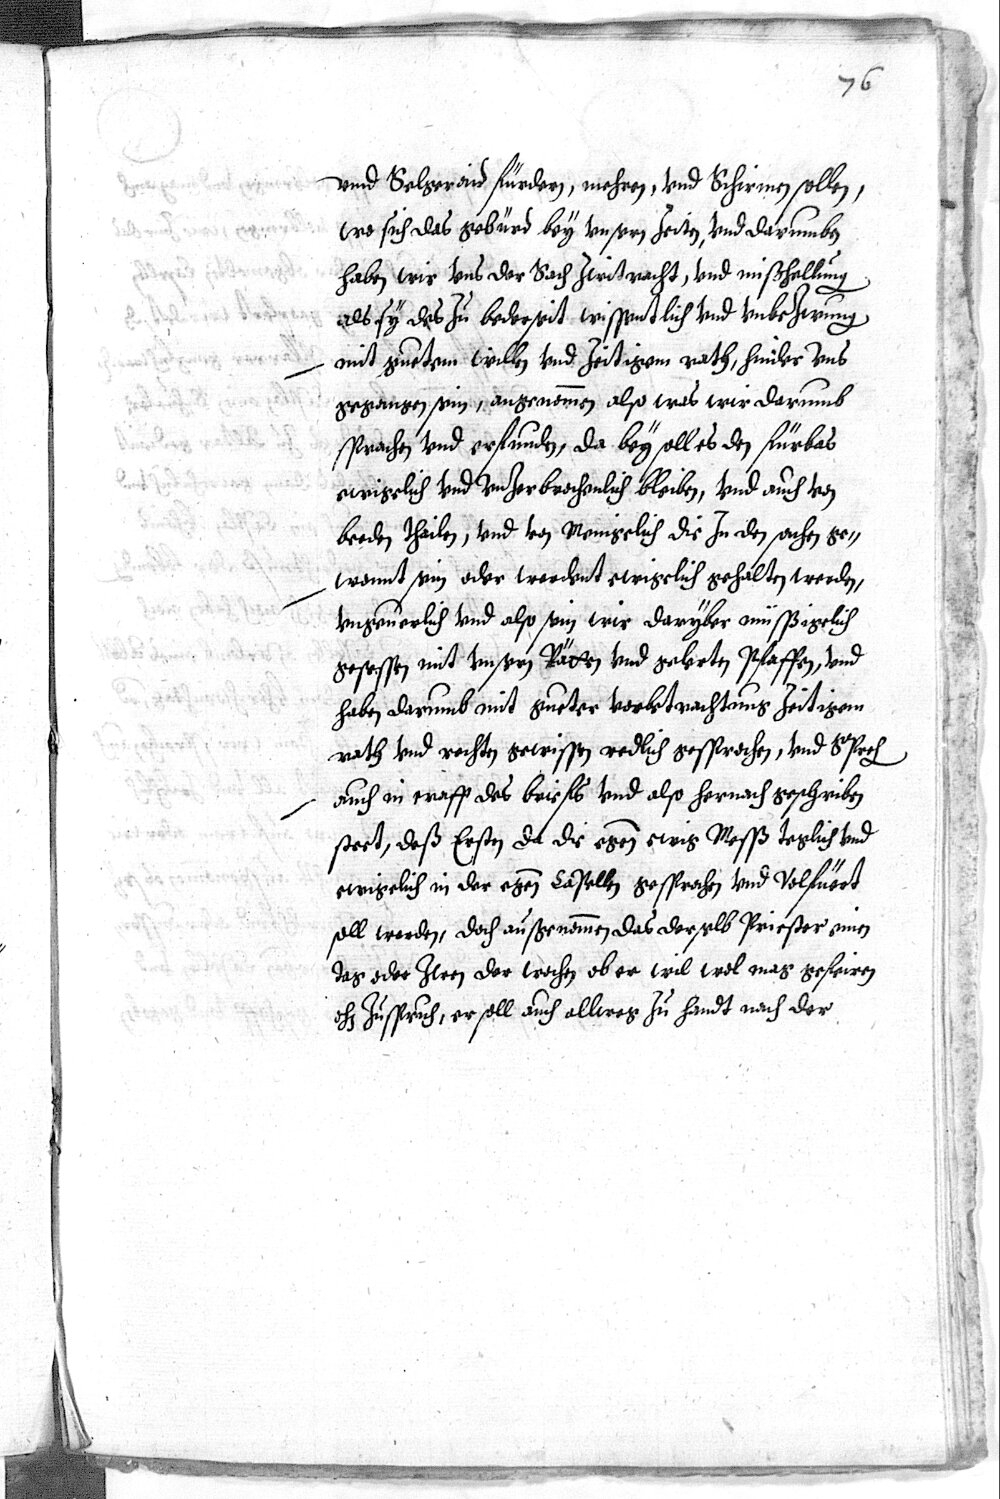 76
vnnd Selgeraid fürdern, mehren, vnd Schirmen sollen,
wo sich das gebürd bey vnsern Zeiten, vnd darumben
haben wir vns der Sach Zwitracht, vnd mißhellung
als sy des Zu bederseit wissentlich vnd vnbeZwung
mit guetem willen vnd Zeitigem rath, hinder vns
gegangen sein, angenomen also was wir darumb
sprachen vnd erfunden, da bey soll es den fürbas
ewigclich vnd vnZerbrochenlich bleiben, vnd auch von
beeden thailen, vnd von Menigelich die In den sachen ge„
wonnt sein oder werdent ewigclich gehalten werden,
vngeuerlich vnd also sein wir daryber müssigclich
gesessen mit vnsern Räten vnd gelerten Pfaffen, vnd
haben darumb mit gueter vorbetrachtung Zeitigem
rath vnd rechten gewissen redlich gesprochen, vnd Sprech
auch in crafft des briefs vnd also hernach geschriben
steet, deß Ersten da die egen ewig Messß teglich vnd
ewigclich in der egen Capellen gesprochen vnd Volfüert
soll werden, doch außgenomen das derselb Priester einen
tag oder Zwen der wochen ob er wil wol mag gefeiren
ohn Zuspruch, er soll auch allweg Zu handt nach der